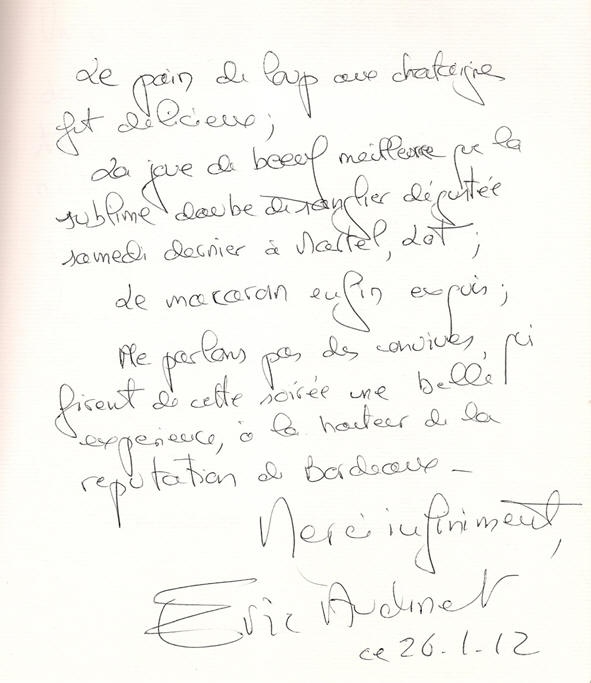 Le pain de loup aux chataignes
fut délicieux;
La joue de boeuf meilleure que la
sublime daube de sanglier dégustée
samedi dernier à Martel, Lot;
Le macaron enfin exquis;
Ne parlons pas des convives, qui
firent de cette soirée une belle
expérience, à la hauteur de la
réputation de Bordeaux –
Merci infiniment,
Eric Audinet
ce 26.1.12